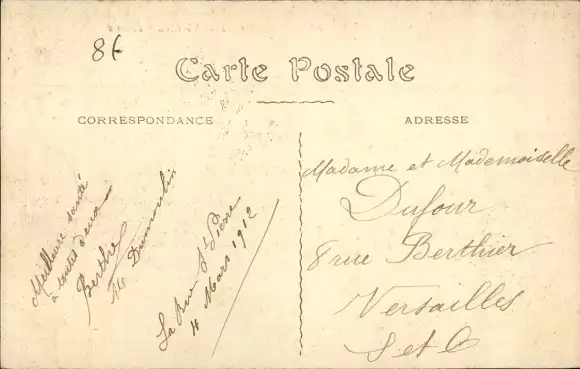 8f
Carte Postale
CORRESPONDANCE
ADRESSE
Meilleure santé
à toutes deux
Berthe
Dumoulin
La Rue St Pierre
4 Mars 1912
Madame et Mademoiselle
Dufour
8 rue Berthier
Versailles
S et O